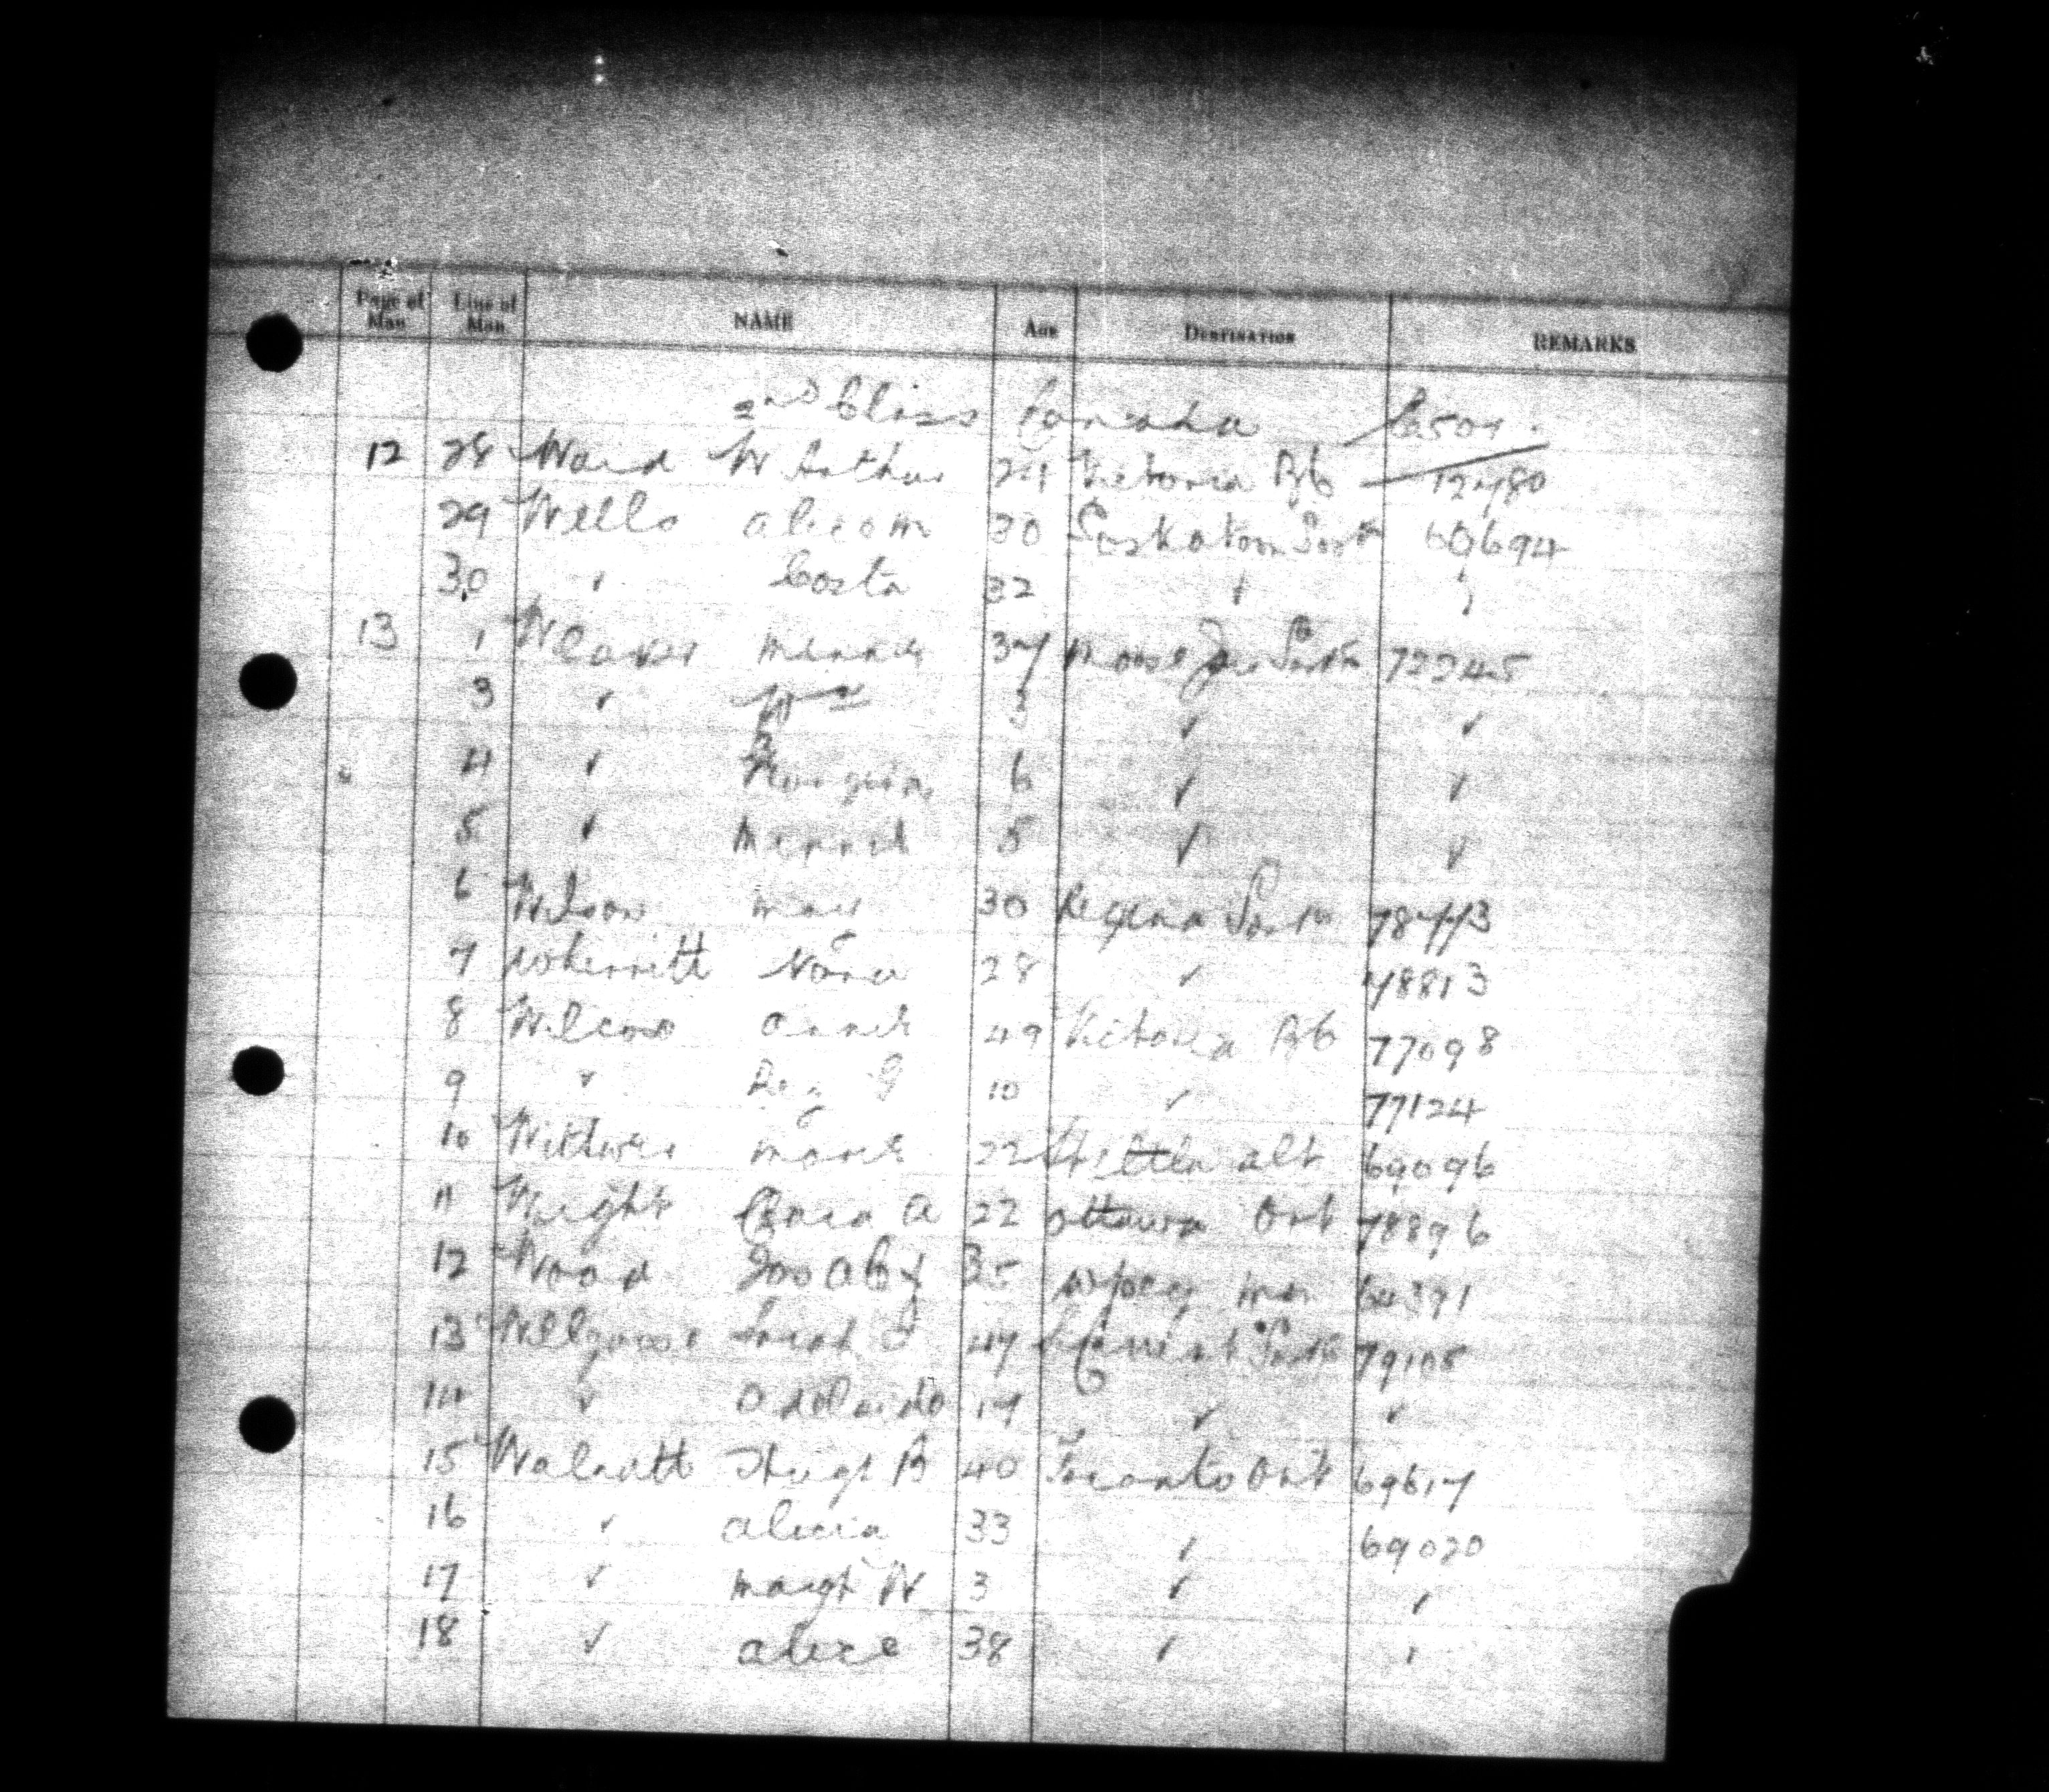 Page of Man Line of Man NAME Age DESTINATION REMARKS
2nd Class Canada
12 28 Ward W Arthur 24 Victoria BC 12480
29 Wells Alice M 30 Saskatoon Sask 69694
30 " 32 " "
13 1 Weaver Minnie 37 Moose Jaw Sask 72245
3 " Wm 3 " "
4 " 6 " "
5 " Minnie 5 " "
6 Wilson May 30 Regina Sask 78443
7 Wherritt Nora 28 " 78813
8 Wilcox Annie 49 Victoria BC 77098
9 " Reg G 10 " 77124
10 Marie 22 Alt 69096
11 Wright A 22 Ottawa Ont 78896
12 Wood 35 Wpeg Man 64391
13 Wellgoose Sarah 47 S Current Sask 79105
14 " Adelaide 17 " "
15 Walnutt Hugh B 40 Toronto Ont 69617
16 " Alicia 33 " 69020
17 " Margt W 3 " "
18 " Alice 38 " "